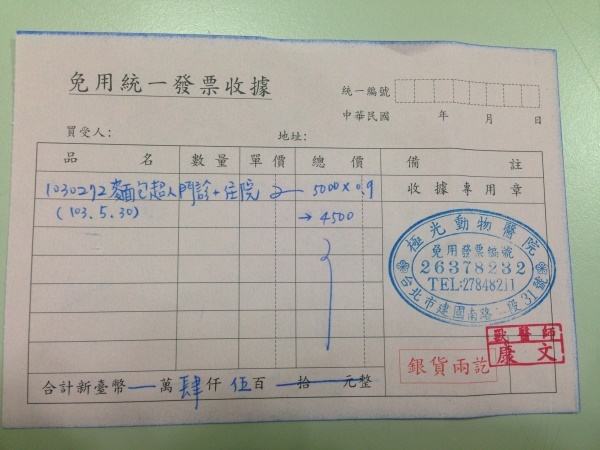 免用統一發票收據
統一編號
中華民國 年 月 日
買受人： 地址：
品名 數量 單價 總價 備註
1030272 麵包超人門診+住院 5000×0.9 收據專用章
(103.5.30) →4500
極光動物醫院
免用發票編號
26378232
TEL:27848211
台北市建國南路一段31號
獸醫師
康文
銀貨兩訖
合計新臺幣 萬肆仟伍百 拾 元整